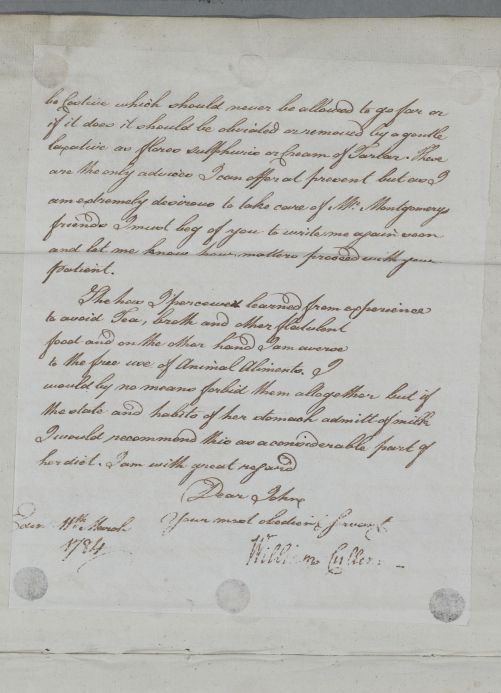 be Costive which should never be allowed to go far or
if it does it should be obviated or removed by a gentle
laxative as flores sulphuris or Cream of Tartar. These
are the only advices I can offer at present but as I
am extremely desirous to take care of Mr. Montgomerys
friends I must beg of you to write me again soon
and let me know how matters proceed with your
patient.
She has I perceive learned from experience
to avoid Tea, broth and other flatulent
food and on the other hand I am averse
to the free use of Animal Aliments. I
would by no means forbid them altogether but if
the state and habits of her stomach admitt of milk
I would recommend this as a considerable part of
her diet. I am with great regard
Dear John
Your most obedient Servant
Edin March
1784
William Cullen